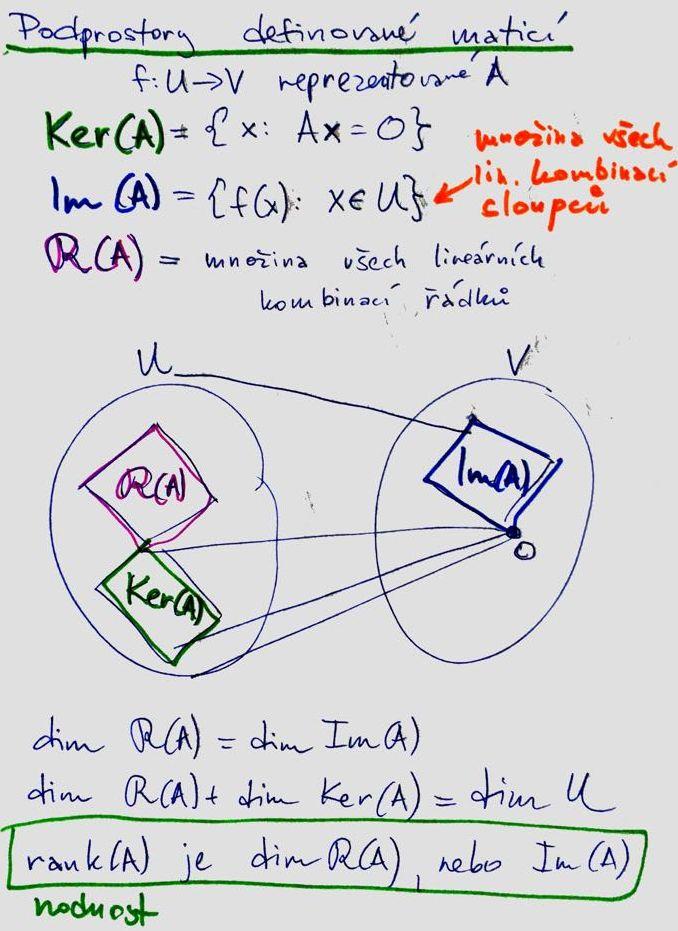 Podprostory definované maticí
f: U → V reprezentované A
Ker(A) = { x: Ax = 0 }
Im(A) = { f(x): x ∈ U }
množina všech
lin. kombinací
sloupců
R(A) = množina všech lineárních
kombinací řádků
U
V
R(A)
Im(A)
0
Ker(A)
dim R(A) = dim Im(A)
dim R(A) + dim Ker(A) = dim U
rank(A) je dim R(A), nebo Im(A)
hodnost